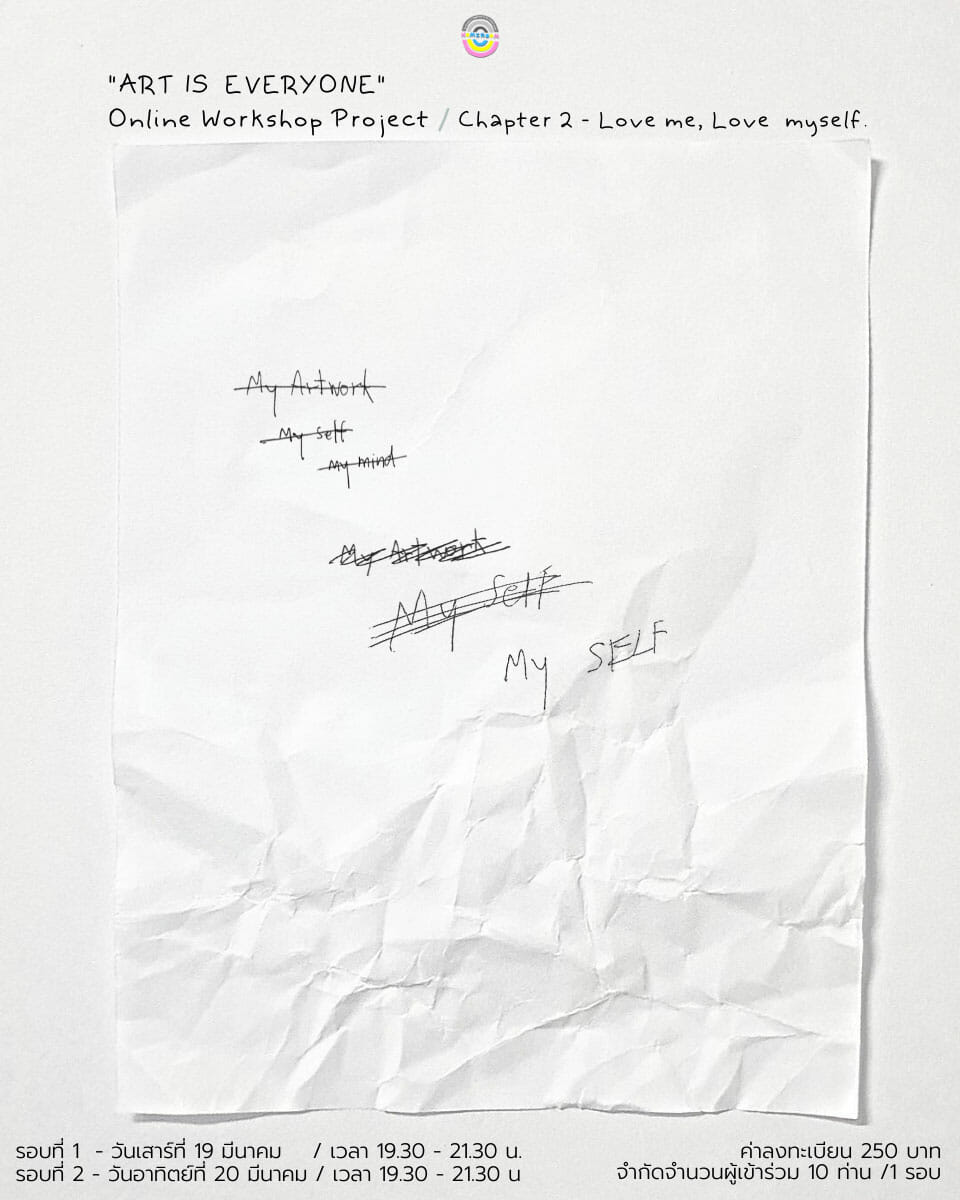 "ART IS EVERYONE"
Online Workshop Project / Chapter 2 - Love me, Love myself.
My Artwork
My self
My mind
My Artwork
My Self
My SELF
รอบที่ 1 - วันเสาร์ที่ 19 มีนาคม / เวลา 19.30 - 21.30 น.
รอบที่ 2 - วันอาทิตย์ที่ 20 มีนาคม / เวลา 19.30 - 21.30 น
ค่าลงทะเบียน 250 บาท
จำกัดจำนวนผู้เข้าร่วม 10 ท่าน /1 รอบ